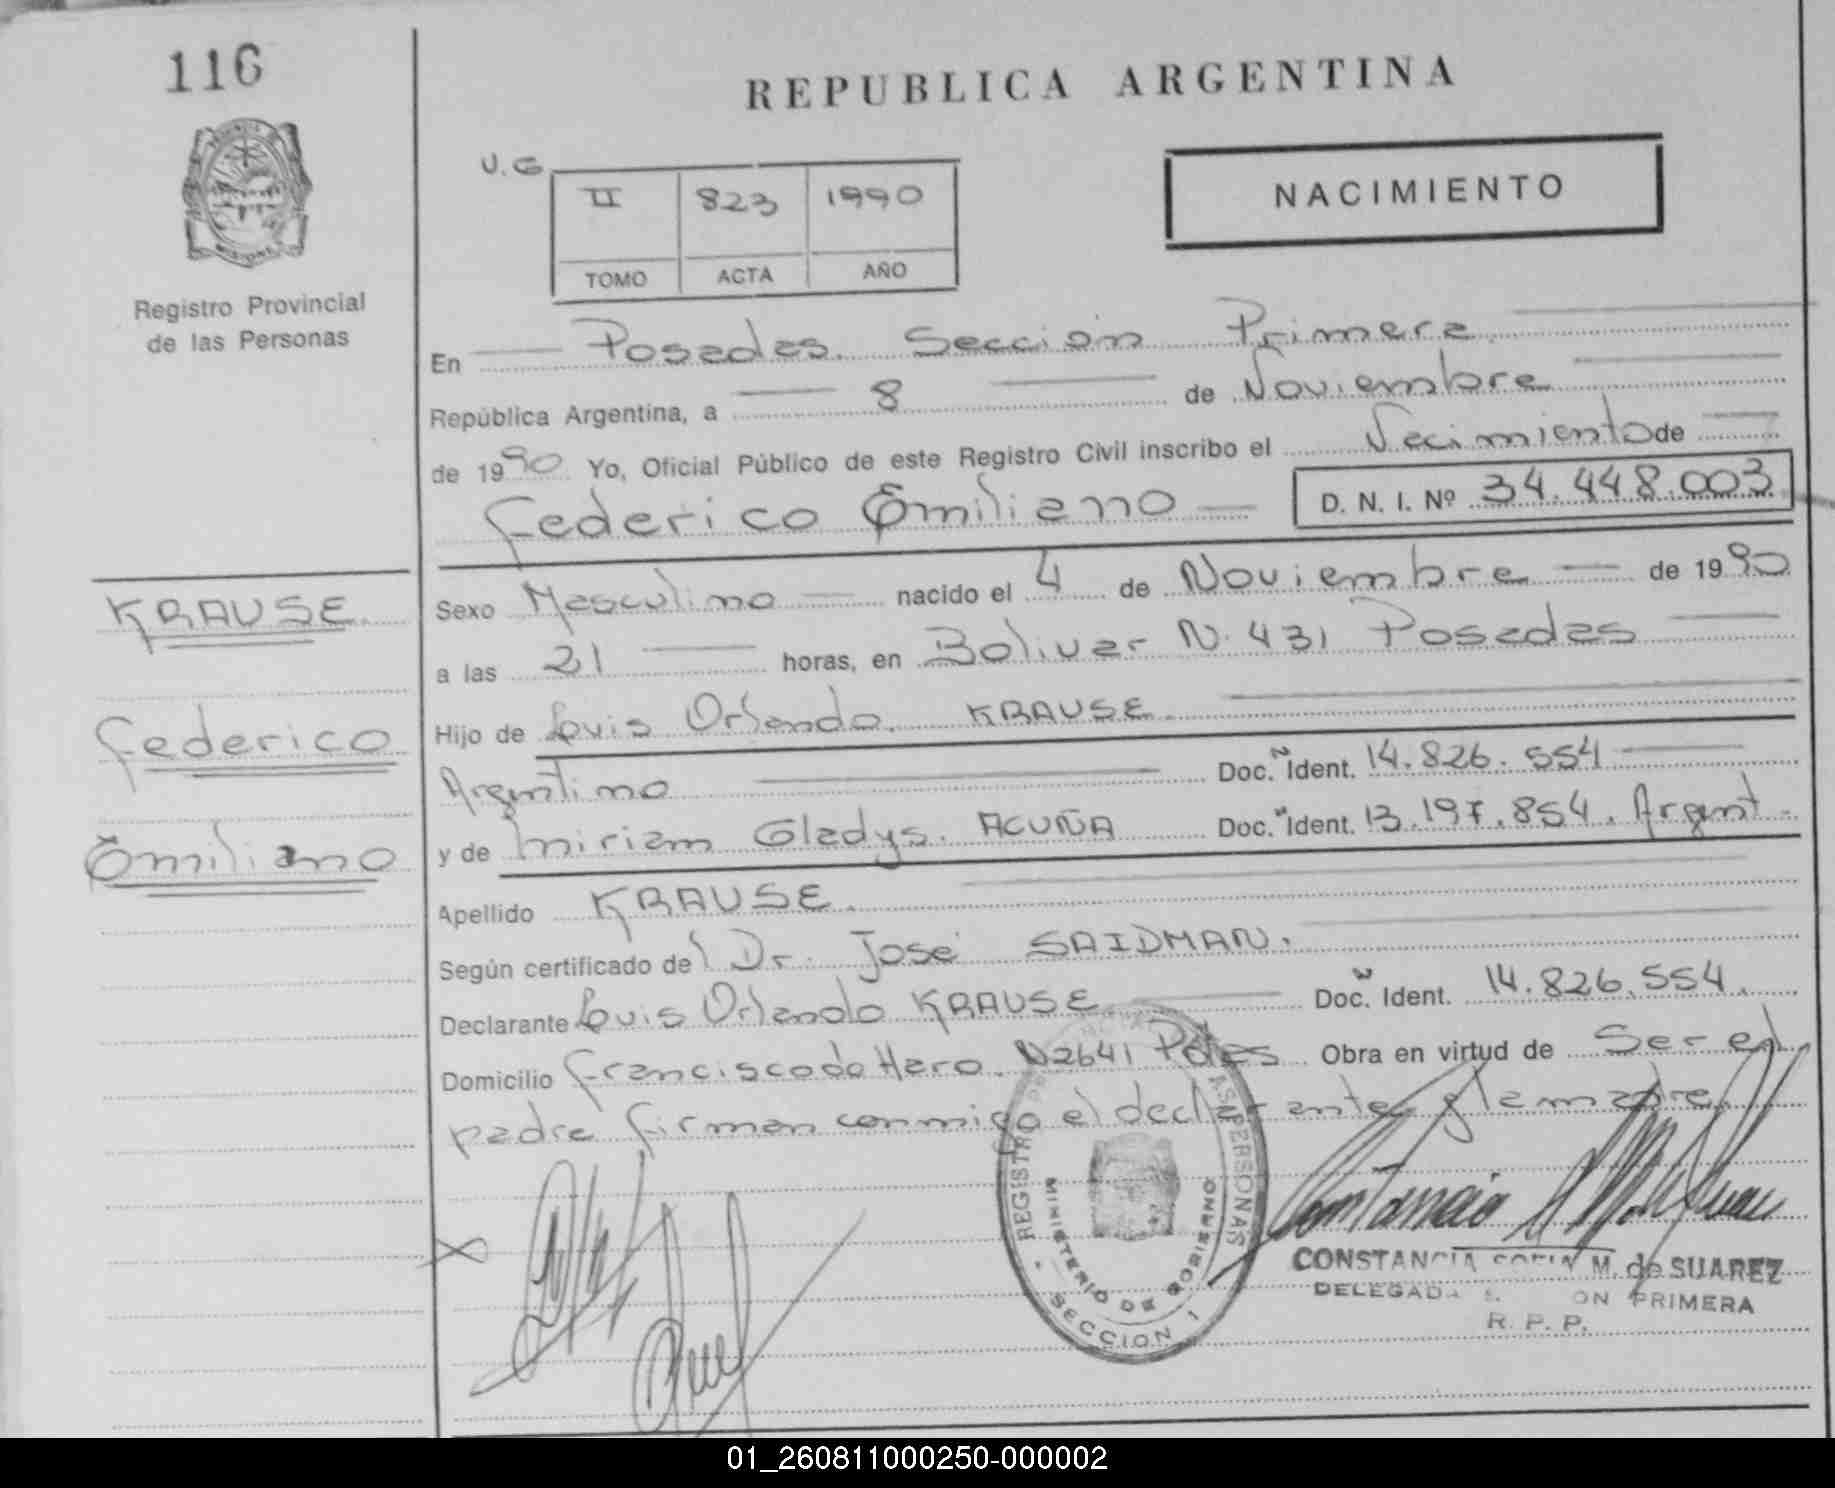 116
REPUBLICA ARGENTINA
U.G
II 823 1990
TOMO ACTA AÑO
NACIMIENTO
Registro Provincial
de las Personas
En Posadas. Sección Primera
República Argentina, a 8 de Noviembre
de 1990 Yo, Oficial Público de este Registro Civil inscribo el Nacimiento de
Federico Emiliano D. N. I. Nº 34.448.003
KRAUSE.
Federico
Emiliano
Sexo Masculino nacido el 4 de Noviembre de 1990
a las 21 horas, en Bolivar N. 431 Posadas
Hijo de Luis Orlando. KRAUSE.
Argentino Doc. Ident. 14.826.554
y de Miriam Gladys. ACUÑA Doc. Ident. 13.197.854. Argent.
Apellido KRAUSE.
Según certificado del Dr. José SAIDMAN.
Declarante Luis Orlando KRAUSE Doc. Ident. 14.826.554.
Domicilio Francisco de Haro. N2641 Pdas Obra en virtud de Ser el
padre firman conmigo el declarante y la madre.
REGISTRO PERSONAS
MINISTERIO DE GOBIERNO
SECCION 1
CONSTANCIA SOFIA M. de SUAREZ
DELEGADA ON PRIMERA
R. P. P.
01_260811000250-000002